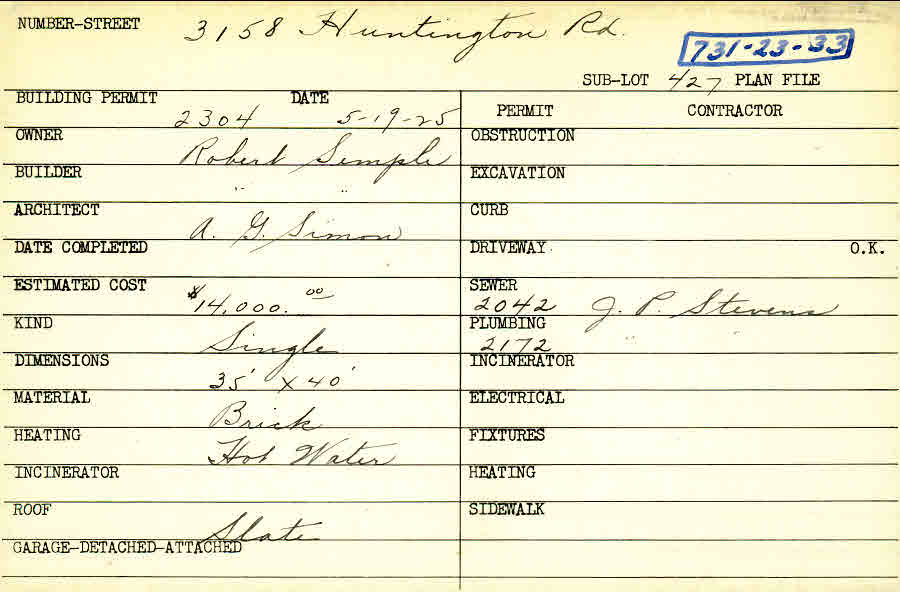 NUMBER-STREET 3158 Huntington Rd.
731-23-33
SUB-LOT 427 PLAN FILE
BUILDING PERMIT 2304 DATE 5-19-25
PERMIT CONTRACTOR
OWNER Robert Semple
OBSTRUCTION
BUILDER " "
EXCAVATION
ARCHITECT A. G. Simon
CURB
DATE COMPLETED
DRIVEWAY O.K.
ESTIMATED COST $14,000.00
SEWER 2042 J. P. Stevens
KIND Single
PLUMBING 2172 " "
DIMENSIONS 35' x 40'
INCINERATOR
MATERIAL Brick
ELECTRICAL
HEATING Hot Water
FIXTURES
INCINERATOR
HEATING
ROOF Slate
SIDEWALK
GARAGE-DETACHED-ATTACHED